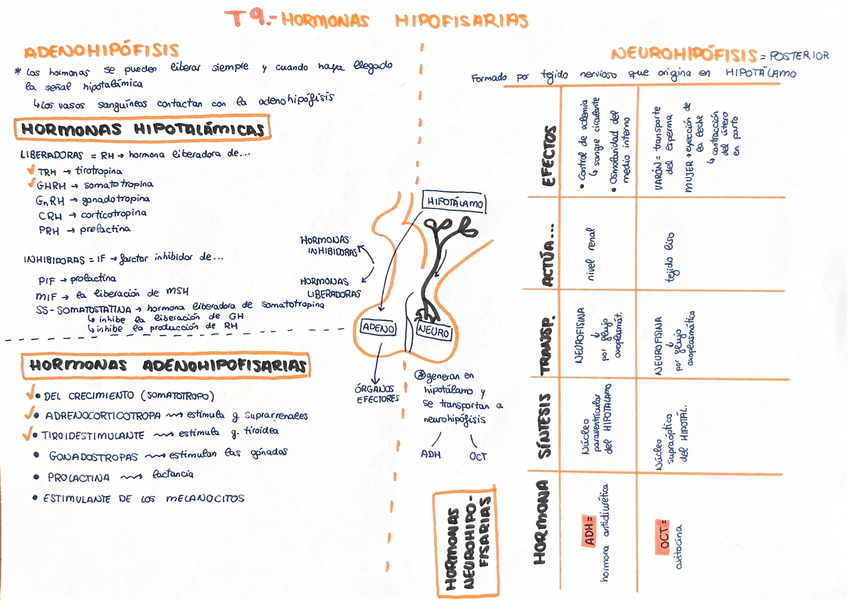 T9.- HORMONAS HIPOFISARIAS
ADENOHIPÓFISIS
* Las hormonas se pueden liberar siempre y cuando haya llegado
la señal hipotalámica
↳ Los vasos sanguíneos contactan con la adenohipófisis
HORMONAS HIPOTALÁMICAS
LIBERADORAS = RH → hormona liberadora de...
TRH → tirotropina
GHRH → somatotropina
GnRH → gonadotropina
CRH → corticotropina
PRH → prolactina
INHIBIDORAS = IF → factor inhibidor de...
PIF → prolactina
MIF → la liberación de MSH
SS-SOMATOSTATINA → hormona liberadora de somatotropina
↳ inhibe la liberación de GH
↳ inhibe la producción de RH
HORMONAS ADENOHIPOFISARIAS
• DEL CRECIMIENTO (SOMATOTROPO)
• ADRENOCORTICOTROPA → estimula g. suprarrenales
• TIROIDESTIMULANTE → estimula g. tiroidea
• GONADOSTROPAS → estimulan las gónadas
• PROLACTINA → lactancia
• ESTIMULANTE DE LOS MELANOCITOS
HIPOTÁLAMO
HORMONAS
INHIBIDORAS
HORMONAS
LIBERADORAS
ADENO
NEURO
ÓRGANOS
EFECTORES
generan en
hipotálamo y
se transportan a
neurohipófisis
ADH
OCT
HORMONAS
NEUROHIPO-
FISARIAS
NEUROHIPÓFISIS = POSTERIOR
Formado por tejido nervioso que origina en HIPOTÁLAMO
HORMONA
SÍNTESIS
TRANSP.
ACTÚA...
EFECTOS
ADH =
hormona antidiurética
Núcleo
paraventricular
del HIPOTÁLAMO
NEUROFISINA
↓
por flujo
axoplasmát.
nivel renal
• Control de volemia
↳ sangre circulante
• Osmolaridad del
medio interno
OCT =
oxitocina
Núcleo
supraóptico
del HIPOTÁL.
NEUROFISINA
↓
por flujo
axoplasmático
tejido liso
VARÓN = transporte
del esperma
MUJER → eyección de
la leche
↳ contracción
del útero
en parto